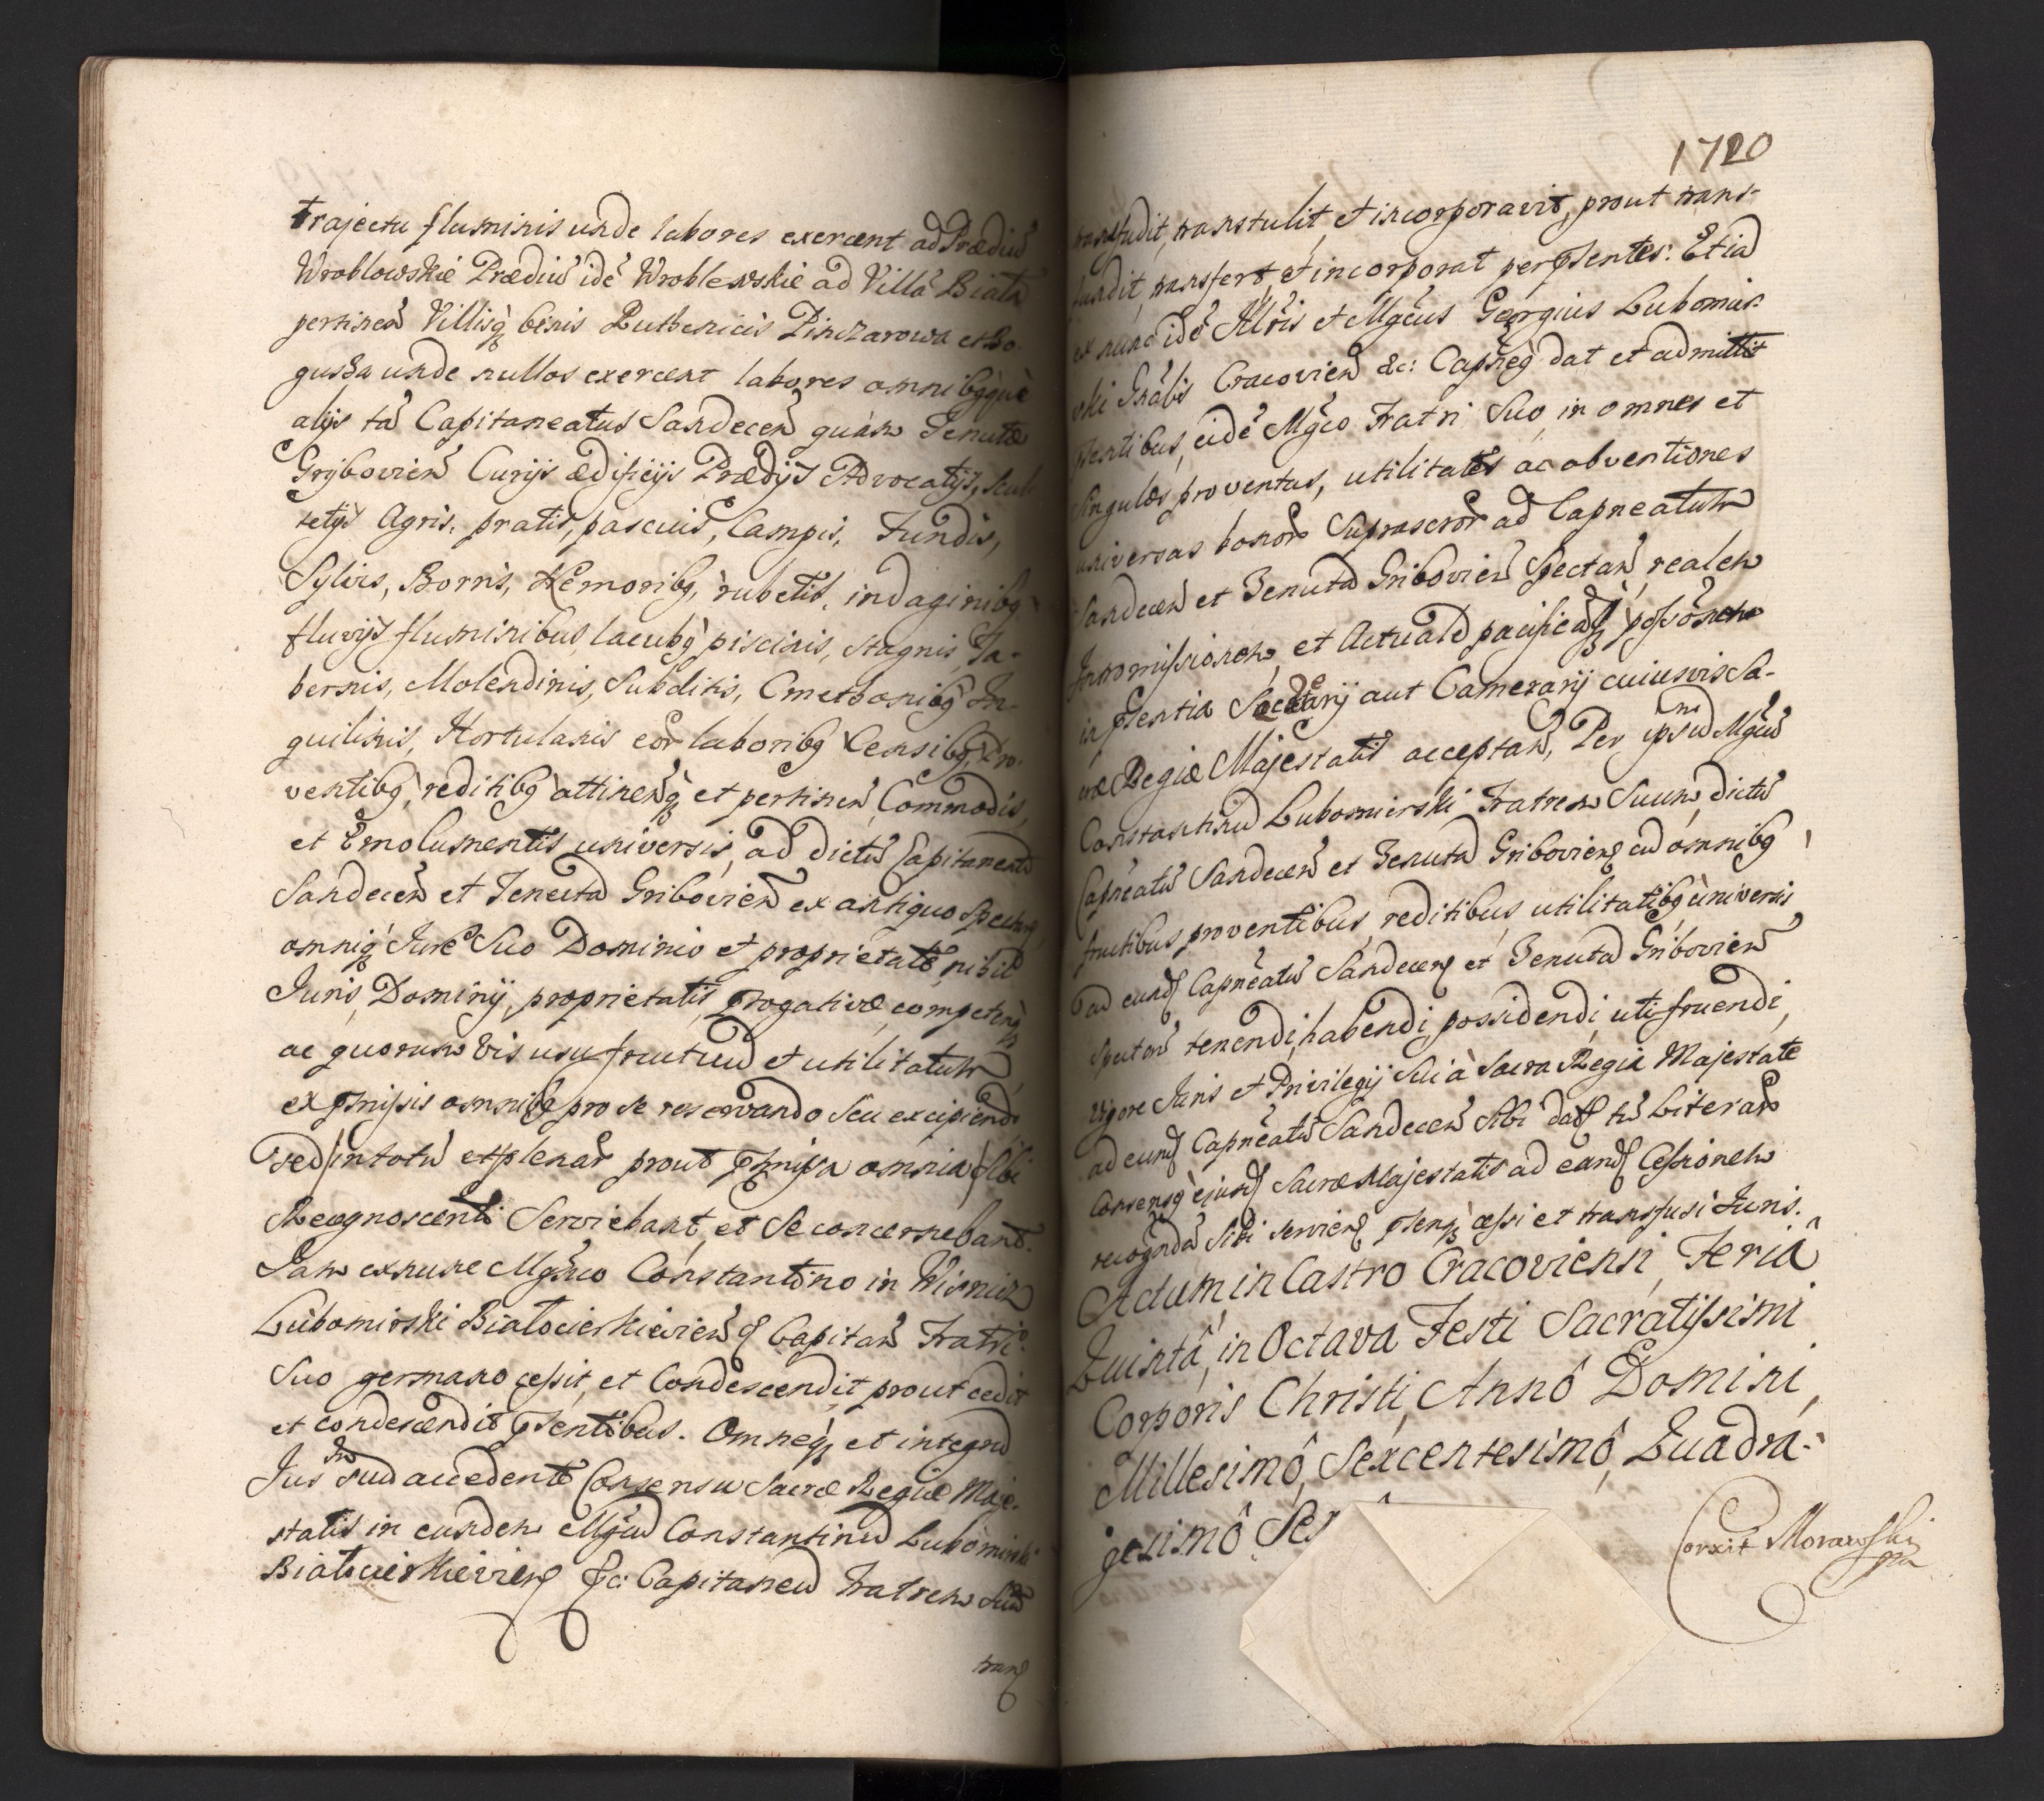 trajectu fluminis unde labores exercent ad Prædiū
Wroblowskie Prædiū idē Wroblewskie ad Villā Biała
pertineñ Villisq̀ binis Ruthenicis Pinczarowa et Bo-
gusza unde nullos exercent labores omnibq̀què
alijs tā Capitaneatus Sandeceñ quàm Tenutæ
Grÿbovieñ Curijs ædificijs Prædijs Advocatijs, Scul-
tetijs Agris, pratis, pascuis, Campis, Fundis,
Sylvis, Borris, Nemoribq, rubetis, indaginibq
fluvijs fluminibus, lacubq̀ piscinis, stagnis, Ta-
bernis, Molendinis, Subditis, Cmethonibq̀ In-
quilinis, Hortulanis eor̃ laboribq Censibq, Pro-
ventibq̀, reditibq̀ attineñq̀ et pertineñ Commodis,
et Emolumentis universis, ad dictū Capitaneatū
Sandeceñ et Tenutā Gribovieñ ex antiquo Spectañ,
omniq̀ Jure Suo Dominio et proprietate, nihil
Juris, Dominij, proprietatis, p̄rogativæ, competeñ
ac quorumvis usufructuū et utilitatum
ex p̄missis omnibq pro se reservando seu excipiendo
sed in totū et plenar̃ prout p̄missa omnia Sibi
Recognoscenti Serviebant, et Se concernebant.
Jam exnunc Mg̃nco Constantino in Wisnicz
Lubomirski Białocierkiewieñ & Capitañ Fratri
Suo germano cessit, et Condescendit, prout cedit
et condescendit p̄sentibus. Omneq̀ et integrū
Jus Suū accedente Consensu Sacræ Regiæ Maje-
statis in eundem Mg̃cū Constantinū Lubomirski
Białocierkievieñ &c: Capitaneū Fratrem Suū
tran&
1720
transfudit, transtulit, et incorporavit, prout trans-
fundit, transfert, et incorporat per p̄sentes: Et iā
ex nunc idē Illr̃is et Mg̃cus Georgius Lubomir-
ski Gñalis Cracovieñ &c: Capñeq̀ dat et admittit
p̄sentibus, eidē Mg̃co Fratri Suo, in omnes et
Singulos proventus, utilitates ac obventiones
universas bonor̃ Suprascr̃or̃ ad Capneatum
Sandeceñ et Tenutā Gribovieñ Spectañ, realem
Intromissionem, et Actualē pacificāq̀ poss̃onem
in p̄sentia Secretarij aut Camerarij cuiusvis Sa-
cræ Regiæ Majestatis acceptañ, Per ipsū Mg̃cū
Constantinū Lubomirski Fratrem Suum, dictū
Capneatū Sandeceñ et Tenutā Gribovieñ cū omnibq
fructibus proventibus reditibus utilitatibq̀ universis
ad eund& Capneatū Sandeceñ et Tenutā Gribovieñ
Spectañ tenendi, habendi, possidendi, utifruendi,
Vigore Juris et Privilegij Sui à Sacra Regia Majestate
ad eund& Capneatū Sandeceñ Sibi dat& tū Literar̃
Consensq̀ ejusd& Sacræ Majestatis ad eand& Cessionem
recog̃ndā Sibi servieñ p̄senq̀ cessi et transfusi Juris.
Actum in Castro Cracoviensi, Feriâ
Quintâ, in Octava Festi Sacratissimi
Corporis Christi, Annô Domini,
Millesimô, Sexcentesimô, Quadra-
gesimô Se
Corxit Morawski
mpa